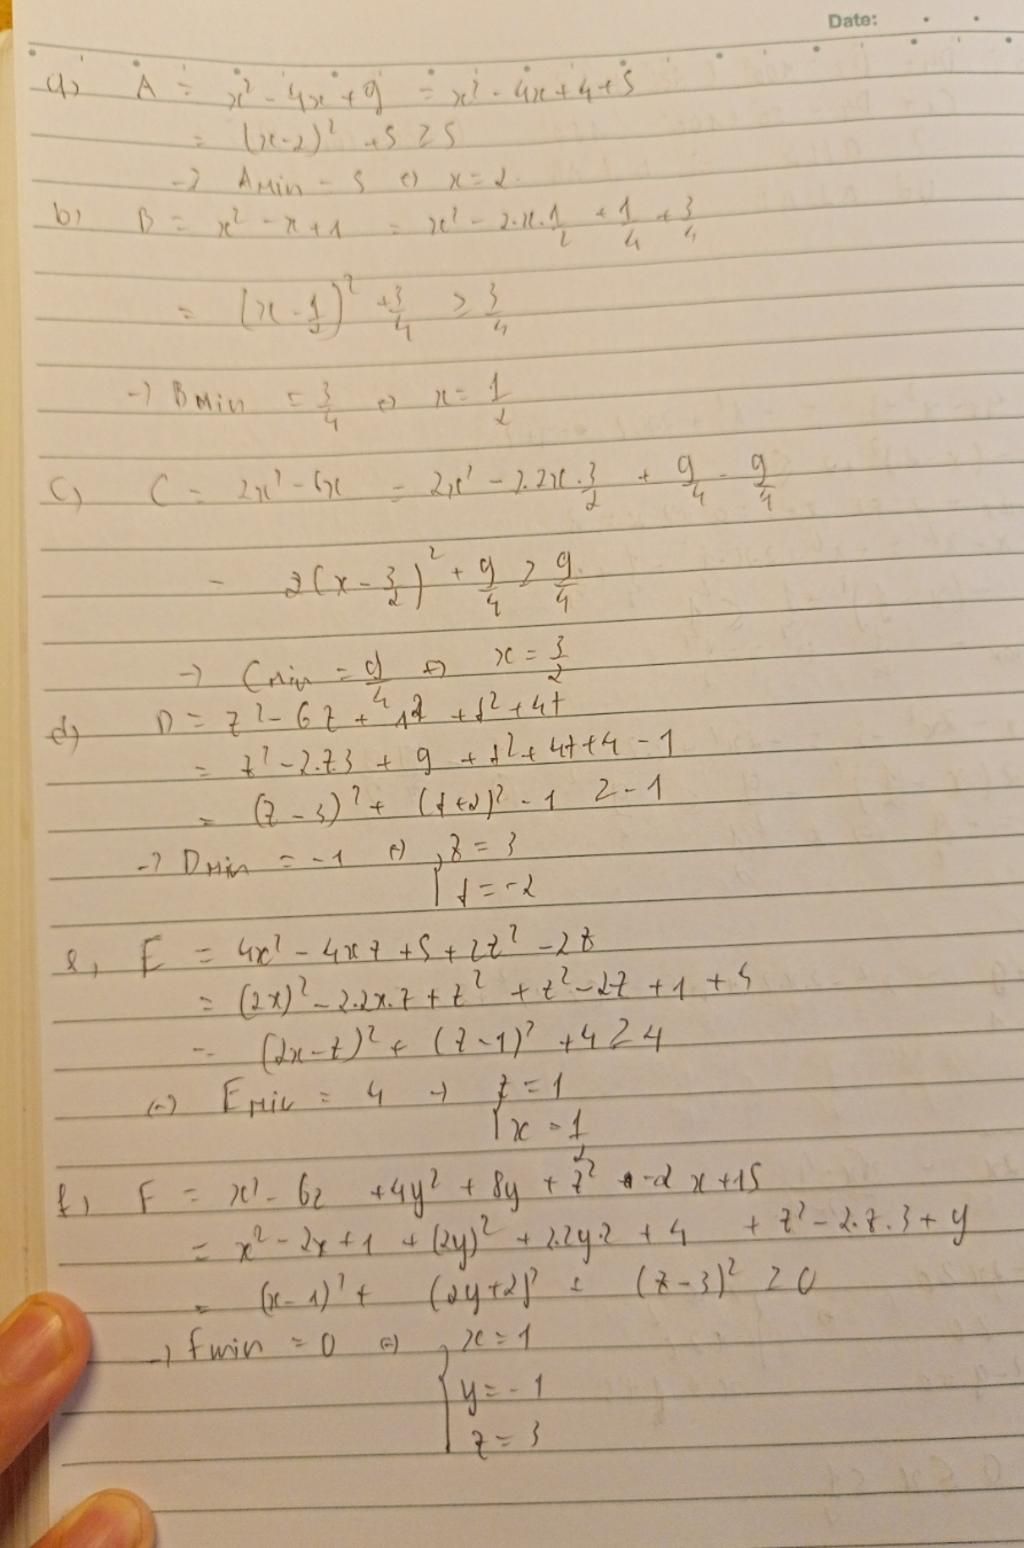 Date:
a) A = x² - 4x + 9 = x² - 4x + 4 + 5
= (x-2)² + 5 ≥ 5
-> A Min = 5 <=> x = 2.
b) B = x² - x + 1 = x² - 2.x.1/2 + 1/4 + 3/4
= (x - 1/2)² + 3/4 ≥ 3/4
-> B Min = 3/4 <=> x = 1/2
c) C = 2x² - 6x = 2x² - 2.2x.3/2 + 9/4 - 9/4
= 2(x - 3/2)² + 9/4 ≥ 9/4
-> C min = 9/4 <=> x = 3/2
d) D = z² - 6z + 12 + t² + 4t
= z² - 2.z3 + 9 + t² + 4t + 4 - 1
= (z - 3)² + (t+2)² - 1 ≥ -1
-> D Min = -1 <=> { z = 3
t = -2
e, E = 4x² - 4xz + 5 + 2z² - 2z
= (2x)² - 2.2x.z + z² + z² - 2z + 1 + 4
= (2x - z)² + (z - 1)² + 4 ≥ 4
<=> E Min = 4 -> { z = 1
x = 1/2
f, F = x² - 6z + 4y² + 8y + z² - 2x + 15
= x² - 2x + 1 + (2y)² + 2.2y.2 + 4 + z² - 2.z.3 + 9
= (x-1)² + (2y+2)² + (z-3)² ≥ 0
-> F min = 0 <=> { x = 1
y = -1
z = 3